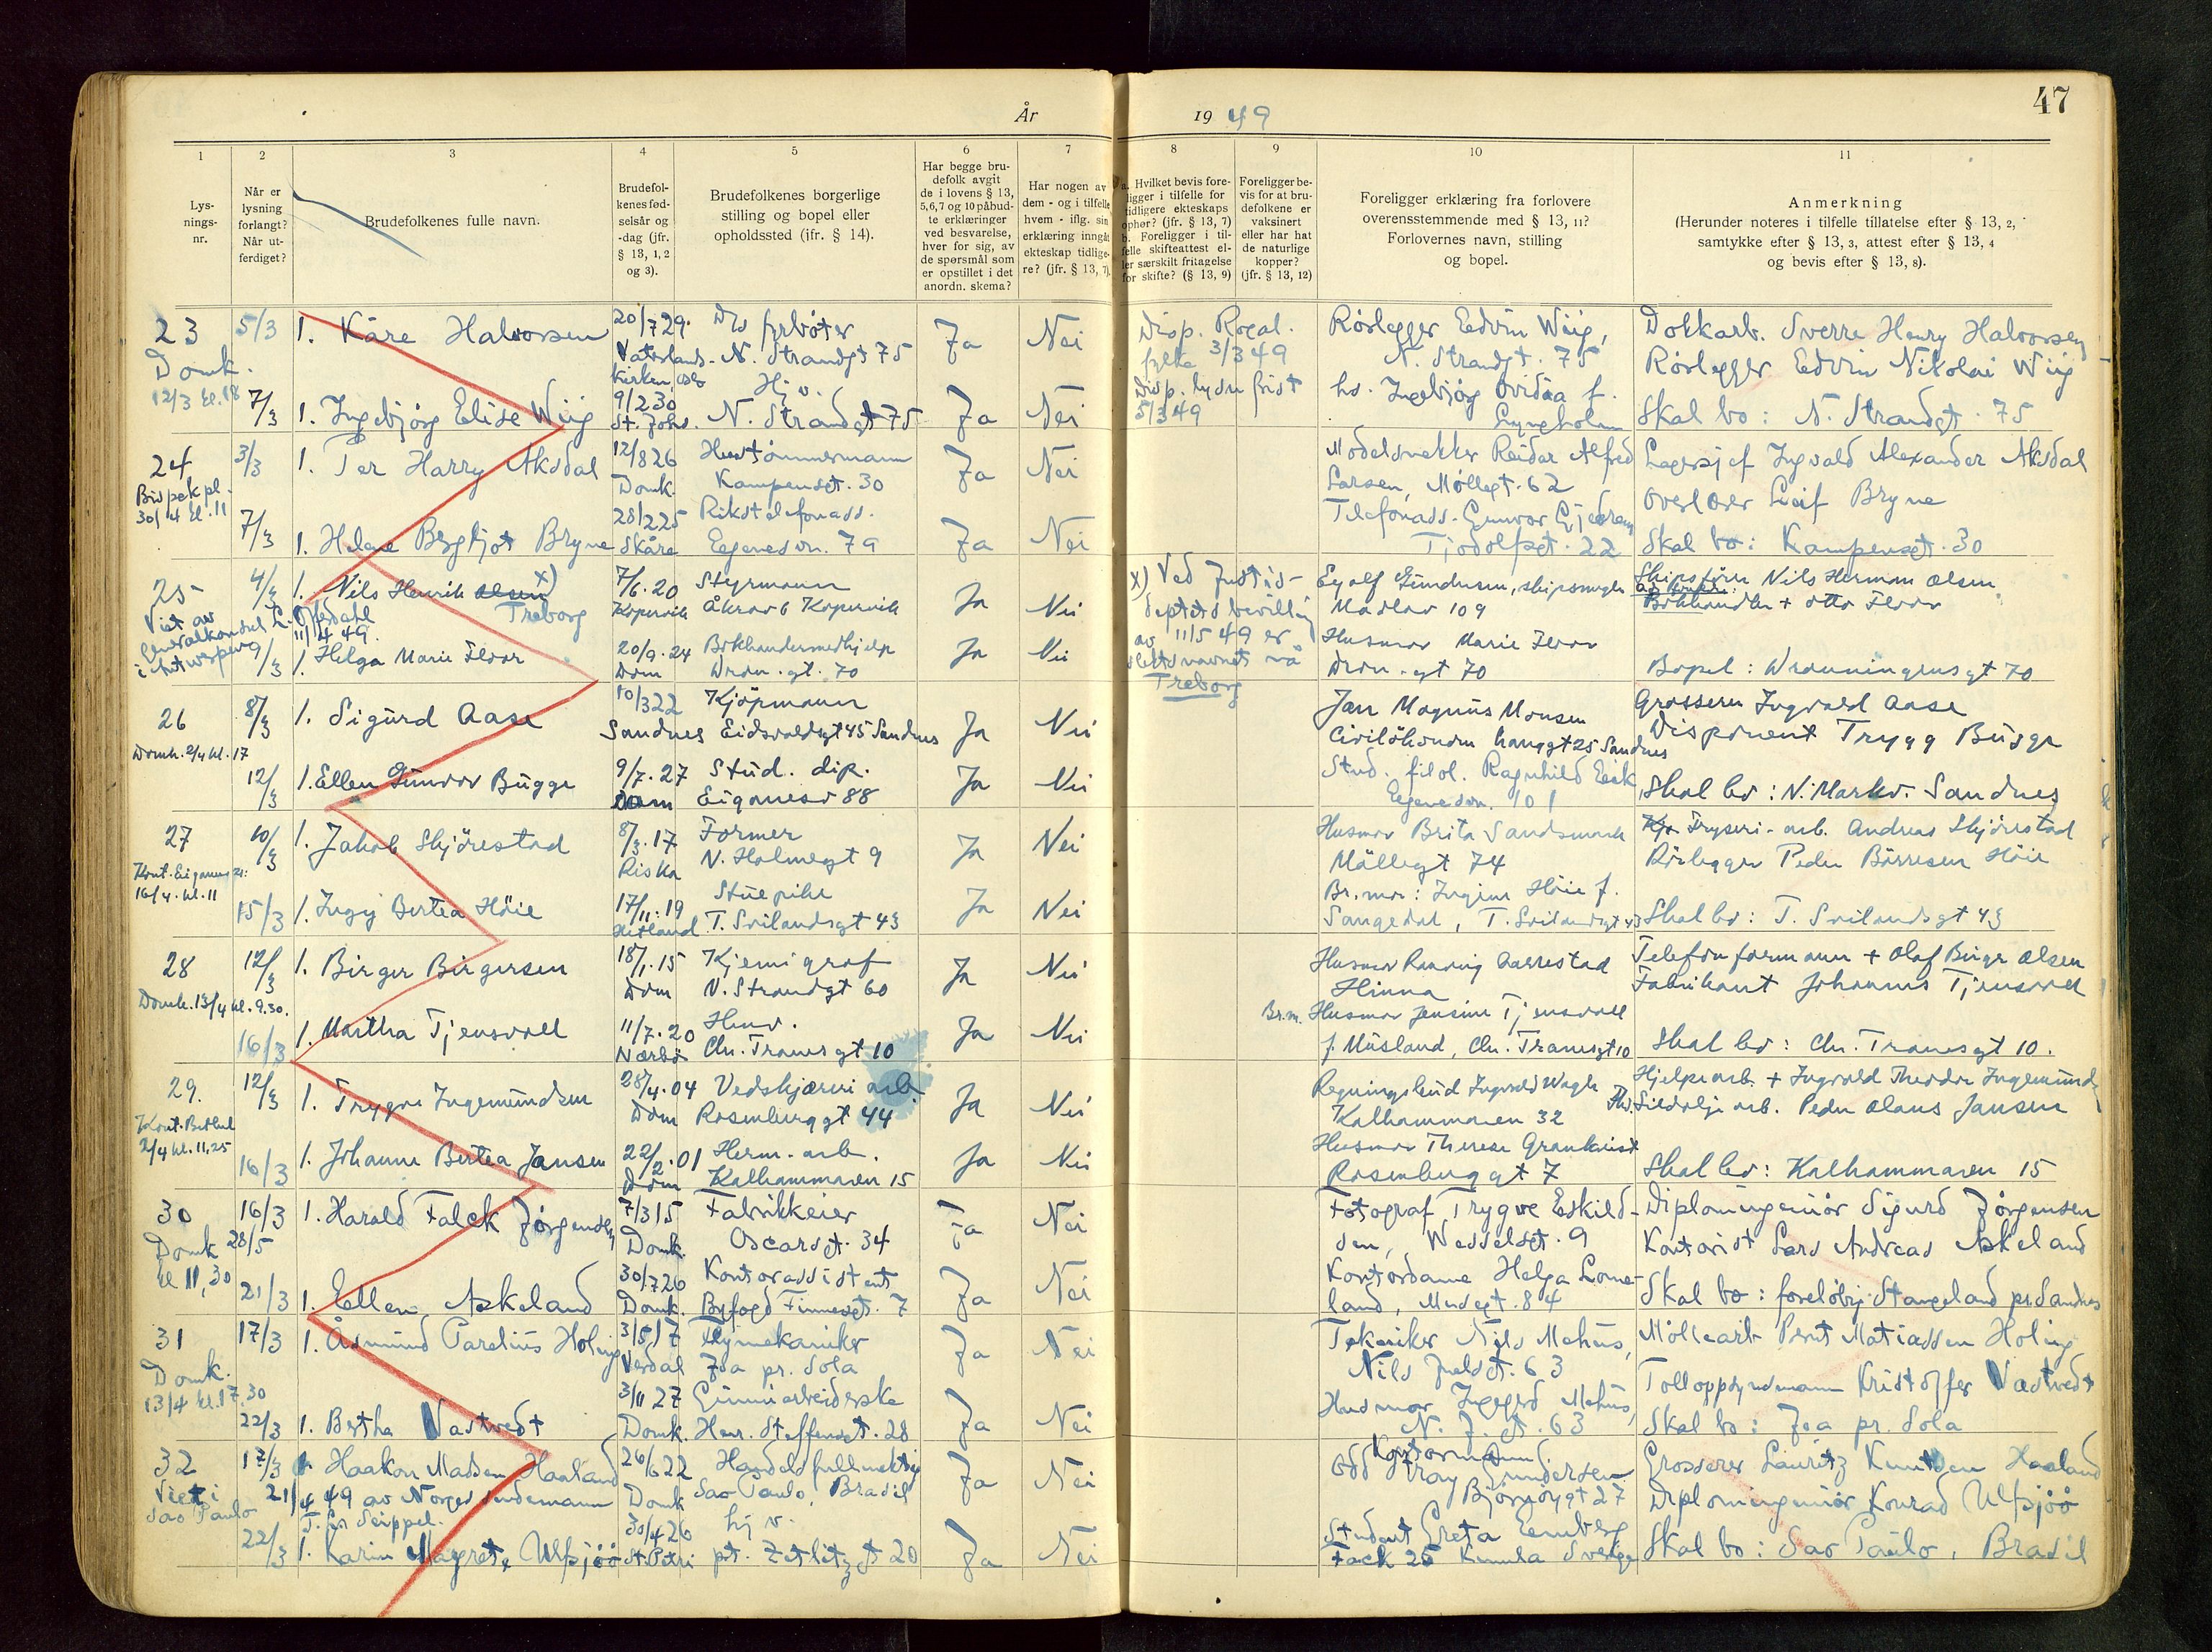 47
År 1949
1
Lys-
nings-
nr.
2
Når er
lysning
forlangt?
Når ut-
ferdiget?
3
Brudefolkenes fulle navn.
4
Brudefol-
kenes fød-
selsår og
-dag (jfr.
§ 13, 1, 2
og 3).
5
Brudefolkenes borgerlige
stilling og bopel eller
opholdssted (ifr. § 14).
6
Har begge bru-
defolk avgit
de i lovens § 13,
5,6,7 og 10 påbud-
te erklæringer
ved besvarelse,
hver for sig, av
de spørsmål som
er opstillet i det
anordn. skema?
7
Har nogen av
dem - og i tilfelle
hvem - iflg. sin
erklæring inngått
ekteskap tidlige-
re? (jfr. § 13, 7).
8
a. Hvilket bevis fore-
ligger i tilfelle for
tidligere ekteskaps
ophør? (jfr. § 13, 7)
b. Foreligger i til-
felle skifteattest el-
ler særskilt fritagelse
for skifte? (§ 13, 9)
9
Foreligger be-
vis for at bru-
defolkene er
vaksinert
eller har hat
de naturlige
kopper?
(jfr. § 13, 12)
10
Foreligger erklæring fra forlovere
overensstemmende med § 13, 11?
Forlovernes navn, stilling
og bopel.
11
Anmerkning
(Herunder noteres i tilfelle tillatelse efter § 13, 2,
samtykke efter § 13, 3, attest efter § 13, 4
og bevis efter § 13, 8).
23
Domk.
12/3 kl. 18
5/3
1. Kåre Halvorsen
20/7 29.
Vaterlands-
kirken, Oslo
fyrbøter
N. Strandgt 75
Ja
Nei
Disp. Rogal.
fylke 3/3 49
Disp. lysn frist
5/3 49
Rørlegger Edvin Wiig,
N. Strandgt. 75
Dokkarb. Sverre Henry Halvorsen
Rørlegger Edvin Nikolai Wiig
7/3
1. Ingebjørg Elise Wiig
9/2 30
St. Johs.
Hj v.
N. Strandgt 75
Ja
Nei
hs. Ingebjørg Ovidia f.
Lyngholm
Skal bo: N. Strandgt. 75
24
Bispekpl.
30/4 kl. 11
3/3
1. Per Harry Aksdal
12/8 26
Domk.
Hustømmermann
Kampensgt. 30
Ja
Nei
Modelsnekker Reidar Alfred
Larsen, Møllegt. 62
Lagersjef Ingvald Alexander Aksdal
Overlærer Leif Bryne
7/3
1. Helene Bergljot Bryne
28/2 25
Skåre
Rikstelefonass.
Egenesvn. 79
Ja
Nei
Telefonass. Gunvor Gjedrem
Tjodolfsgt. 22
Skal bo: Kampensgt. 30
25
Viet av
Generalkonsul L. Offerdahl
i Antwerpen 11/4 49.
4/3
1. Nils Henrik Olsen x)
Treborg
7/6. 20
Kopervik
Styrmann
Åkravg Kopervik
Ja
Nei
x) Ved Justis-
deptets bevilling
av 11/5 49 er
slektsnavnet nå
Treborg
Eyolf Gundersen, skipsmegler
Madlav 109
Skipsfører Nils Herman Olsen
Bokhandler + Otto Floor
9/3
1. Helga Marie Floor
20/9. 24
Dom
Bokhandlermedhjelp
Wrenn. gt. 70
Ja
Nei
Husmor Marie Floor
Wrenn. gt 70
Bopel: Wrenningensgt 70
26
Domk. 2/4 kl. 17
8/3
1. Sigurd Aase
10/3 22
Sandnes
Kjøpmann
Eidsvoldsgt 45 Sandnes
Ja
Nei
Jan Magnus Monsen
Civiløkonom Langgt 25 Sandnes
Grosserer Ingvald Aase
Disponent Trygg Bugge
12/3
1. Ellen Gunvor Bugge
9/7. 27
Dom
Stud. dip.
Eiganesv 88
Ja
Nei
Stud. filol. Ragnhild Eeek
Egenesvn. 101
Skal bo: N. Markv. Sandnes
27
16/4. kl. 11
10/3
1. Jakob Skjørestad
8/3. 17
Riska
Former
N. Holmegt 9
Ja
Nei
Husmor Brita Sandsmark
Møllegt 74
Fryseri-arb. Andreas Skjørestad
Rørlegger Peder Børresen Høie
15/3
1. Ingij Bertea Høie
17/11. 19
Hetland
Stuepike
T. Svilandsgt 43
Ja
Nei
Br.mor: Ingine Høie f.
Sangedal, T. Svilandsgt 43
Skal bo: T. Svilandsgt 43
28
Domk. 13/4 kl. 9.30.
12/3
1. Birger Birgersen
18/1. 15
Dom
Kjemigraf
N. Strandgt 60
Ja
Nei
Husmor Ranveig Aarrestad
Hinna
Telefonformann + Olaf Birger Olsen
Fabrikant Johannes Tjensvoll
16/3
1. Martha Tjensvoll
11/7. 20
Nærbø
Husv.
Chr. Tranesgt 10
Ja
Nei
Br.m. Husmor Jensine Tjensvoll
f. Musland, Chr. Tranesgt 10
Skal bo: Chr. Tranesgt 10.
29.
Kont. Bethel
2/4 kl. 11,25
12/3
1. Trygve Ingemundsen
28/4. 04
Dom
Vedskjæreri arb
Rosenberggt 44
Ja
Nei
Regningsbud Ingvald Wagle
Kalhammaren 32
Hjelpearb. + Ingvald Theodor Ingemunds
Sildolje arb. Peder Olaus Jansen
16/3
1. Johanne Bertea Jansen
22/2. 01
Dom
Herm. arb.
Kalhammaren 15
Ja
Nei
Husmor Therese Grankvist
Rosenberggt 7
Skal bo: Kalhammaren 15
30
Domk 28/5
kl 11,30
16/3
1. Harald Falck Jørgensen
7/3 15
Domk.
Fabrikkeier
Oscarsgt. 34
Ja
Nei
Fotograf Trygve Eskild-
sen, Wesselsgt. 9
Diplomingeniør Sigurd Jørgensen
Kontorist Lars Andreas Askeland
21/3
1. Ellen Askeland
30/7 26
Domk.
Kontorassistent
Byfogd Finnesgt. 7
Ja
Nei
Kontordame Helga Lome-
land, Musegt. 84
Skal bo: foreløbig Stangeland pr. Sandnes
31
Domk.
13/4 kl. 17.30
17/3
1. Åsmund Parelius Holing
3/5 17
Verdal
Flymekaniker
Joa pr. Sola
Ja
Nei
Tekniker Nils Mehus,
Nils Juelsgt. 63
Møllearb Bernt Matiassen Holing
Tolloppsynsmann Kristoffer Vastvedt
22/3
1. Bertha Vastvedt
3/11 27
Domk.
Gummiarbeiderske
Henr. Steffensgt. 28
Ja
Nei
Husmor Ingegerd Mehus,
N. J. gt. 63
Skal bo: Joa pr. Sola
32
Viet i
Sao Paulo
21/4 49 av Norges sendemann
17/3
Haakon Madsen Haaland
26/6 22
Domk
Handelsfullmektig
Sao Paulo, Brasil
Ja
Nei
Kontormann
Odd Gundersen
Bjørnøygt 27
Grosserer Lauritz Knutsen Haaland
Diplomingeniør Konrad Ulfsjöö
22/3
1. Karin Magrete Ulfsjöö
30/4 26
St. Petri
hj v.
pt. Zetlitzgt 20
Ja
Nei
Student Greta Lennberg
Fack 25 Kumla Sverige
Skal bo: Sao Paulo, Brasil